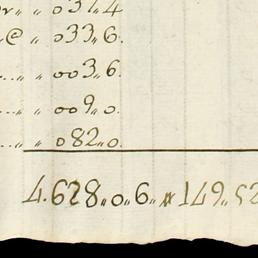 " 037"4
@ " 033"6.
" " 003"6.
" " 009"0.
" 082"0.
4.628"0"6" 149"52